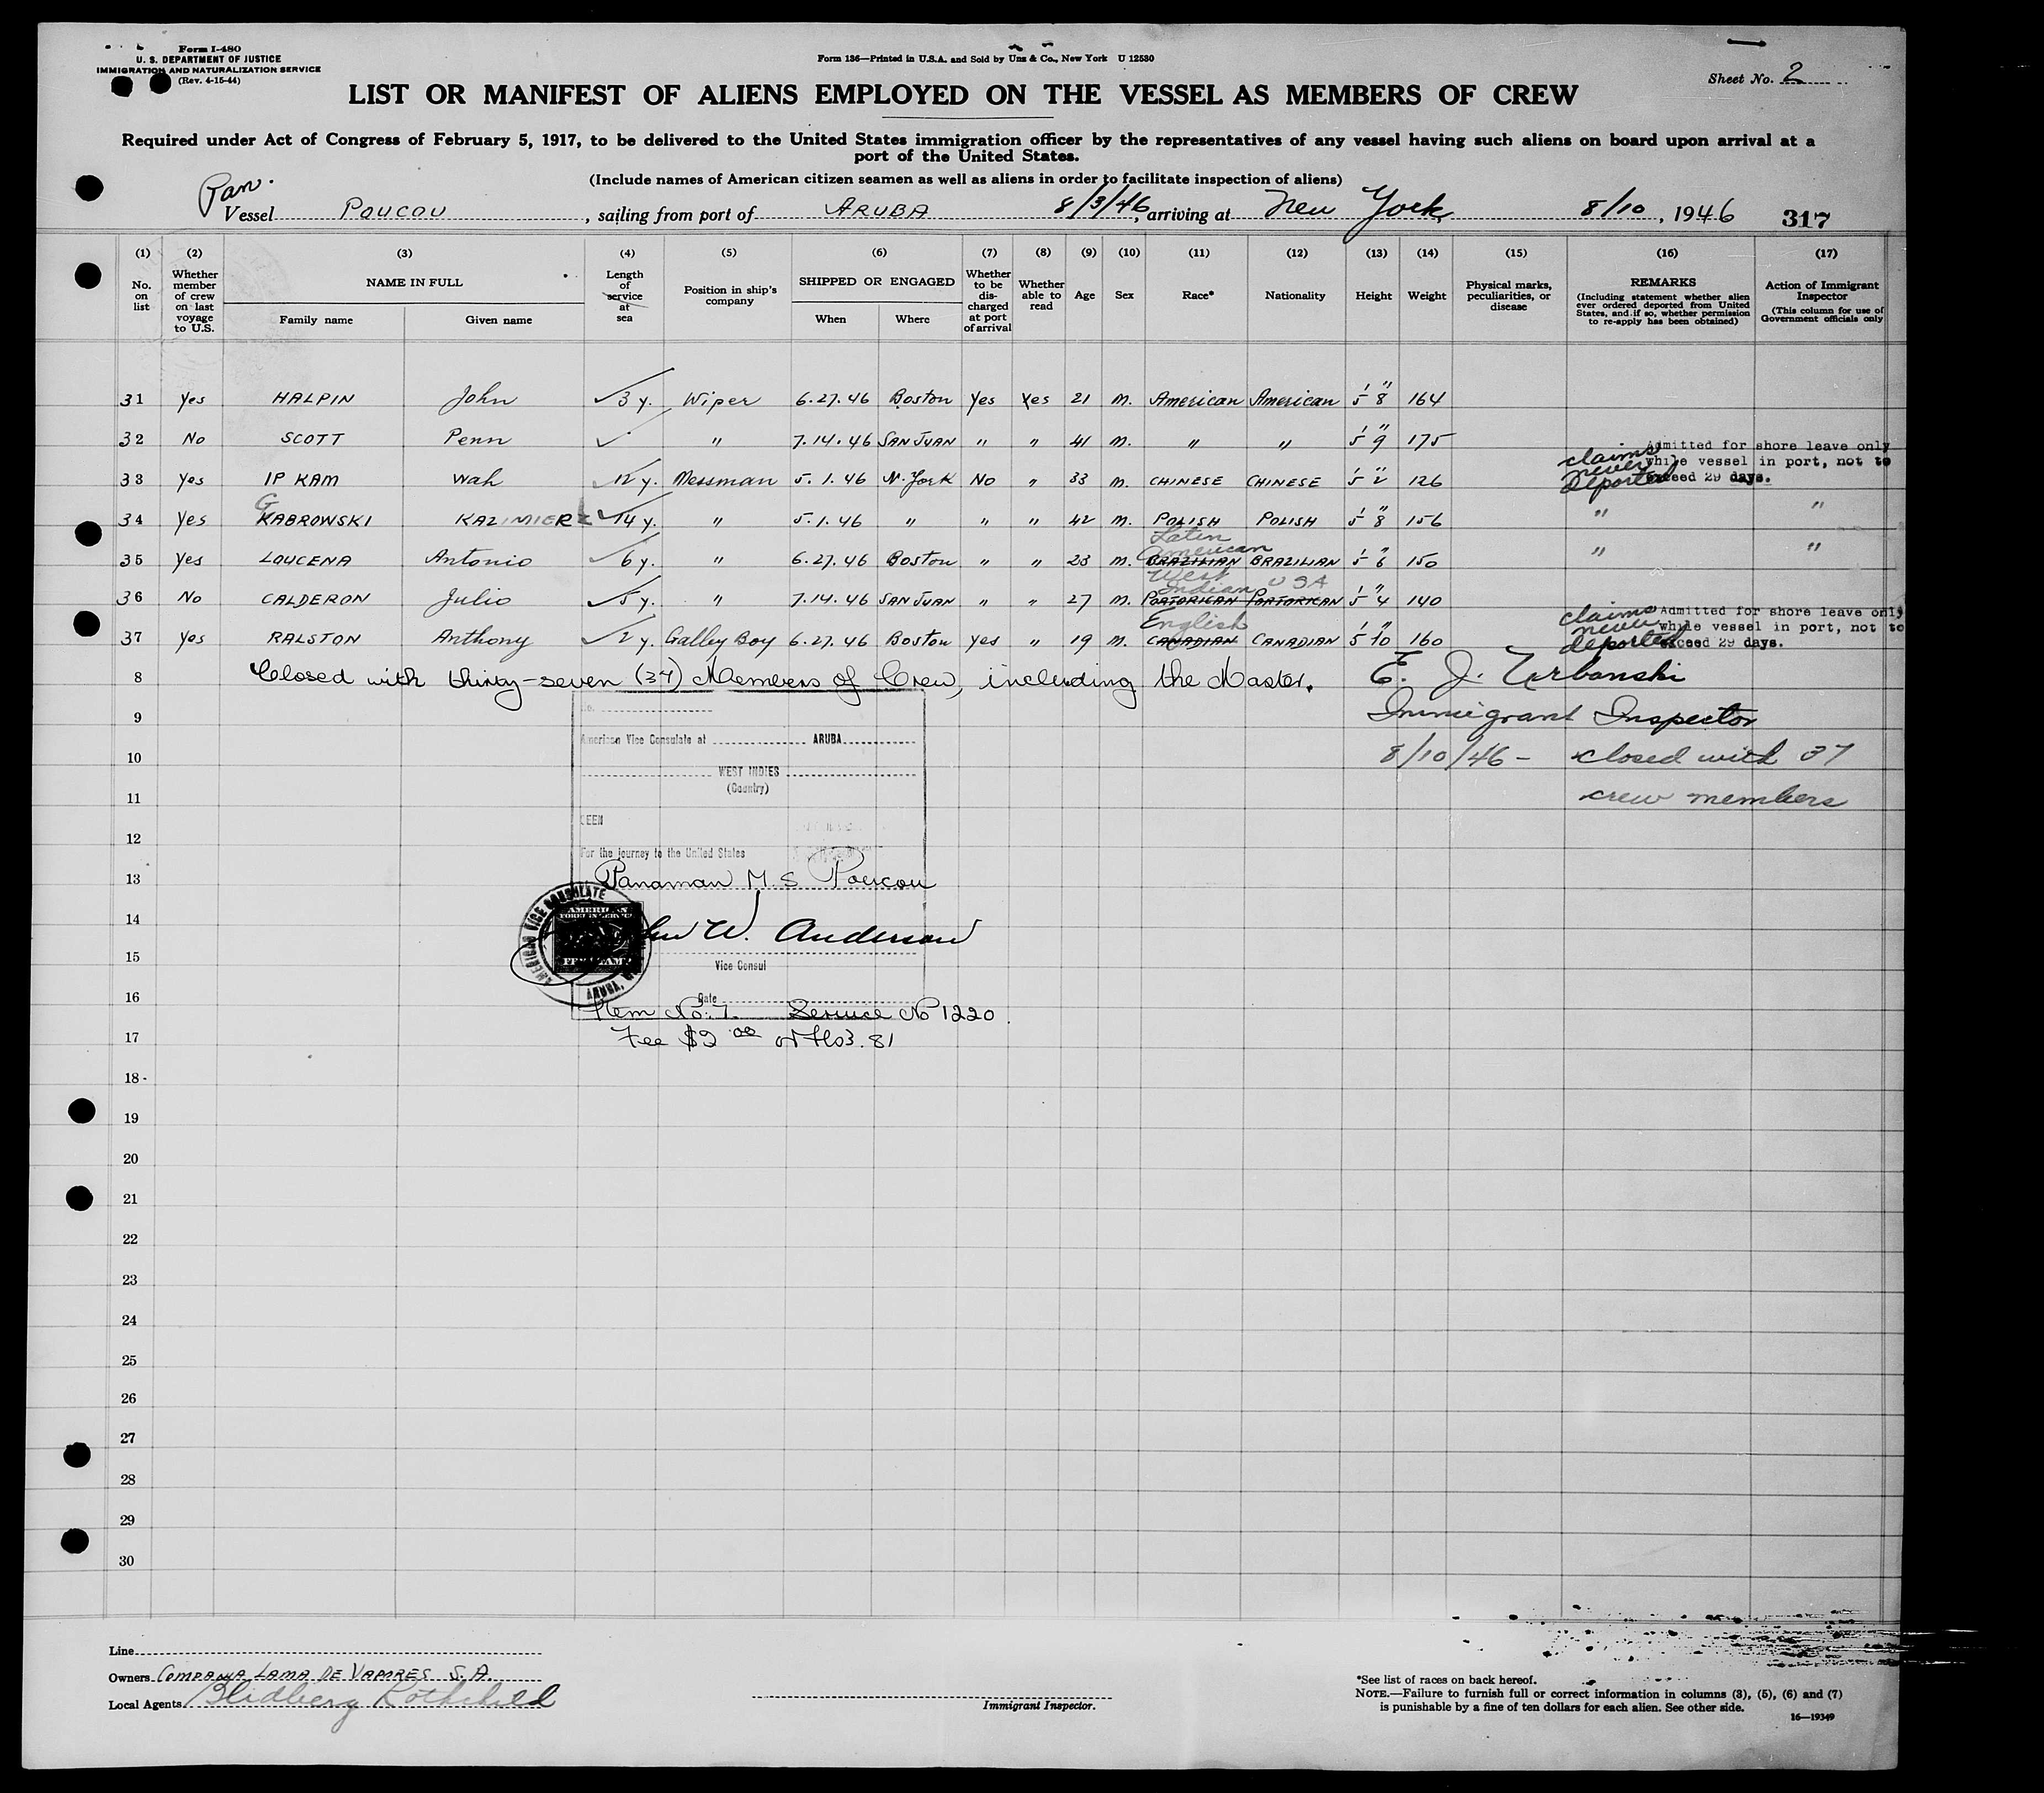 Form I-480
U. S. DEPARTMENT OF JUSTICE
IMMIGRATION AND NATURALIZATION SERVICE
(Rev. 4-15-44)
Form 136—Printed in U.S.A. and Sold by Uns & Co., New York U 12530
Sheet No. 2
LIST OR MANIFEST OF ALIENS EMPLOYED ON THE VESSEL AS MEMBERS OF CREW
Required under Act of Congress of February 5, 1917, to be delivered to the United States immigration officer by the representatives of any vessel having such aliens on board upon arrival at a
port of the United States.
(Include names of American citizen seamen as well as aliens in order to facilitate inspection of aliens)
Pan.
Vessel POUCOU, sailing from port of ARUBA 8/3/46, arriving at New York, 8/10, 1946 317
(1) (2) (3) (4) (5) (6) (7) (8) (9) (10) (11) (12) (13) (14) (15) (16) (17)
No. on list
Whether member of crew on last voyage to U.S.
NAME IN FULL
Family name Given name
Length of service at sea
Position in ship's company
SHIPPED OR ENGAGED
When Where
Whether to be discharged at port of arrival
Whether able to read
Age
Sex
Race*
Nationality
Height
Weight
Physical marks, peculiarities, or disease
REMARKS
(Including statement whether alien ever ordered deported from United States, and if so, whether permission to re-apply has been obtained)
Action of Immigrant Inspector
(This column for use of Government officials only
31 Yes HALPIN John 3 y. Wiper 6.27.46 Boston Yes Yes 21 M. American American 5' 8" 164
32 No SCOTT Penn " 7.14.46 SAN JUAN " " 41 M. " " 5' 9" 175
33 Yes IP KAM Wah 12 y. Messman 5.1.46 N. York No " 33 M. CHINESE CHINESE 5' 2" 126 claims never deported Admitted for shore leave only while vessel in port, not to exceed 29 days.
34 Yes G KABROWSKI KAZIMIERZ 14 y. " 5.1.46 " " " 42 M. POLISH POLISH 5' 8" 156 " "
35 Yes LOUCENA Antonio 6 y. " 6.27.46 Boston " " 23 M. Latin American BRAZILIAN BRAZILIAN 5' 6" 150 " "
36 No CALDERON Julio 5 y. " 7.14.46 SAN JUAN " " 27 M. West Indian PORTORICAN USA PORTORICAN 5' 4" 140
37 Yes RALSTON Anthony 2 y. Galley Boy 6.27.46 Boston Yes " 19 M. English CANADIAN CANADIAN 5' 10" 160 claims never deported Admitted for shore leave only while vessel in port, not to exceed 29 days.
8 Closed with thirty-seven (37) Members of Crew, including the Master. E. J. Urbanski
9 Immigrant Inspector
10 8/10/46 - closed with 37
11 crew members
No.
American Vice Consulate at ARUBA
WEST INDIES
(Country)
12 SEEN
For the journey to the United States
13 Panaman M.S. Poucou
14 W. Anderson
15 Vice Consul
16 Date
Item No. 7. Service No 1220.
17 Fee $2.00
AMERICAN VICE CONSULATE
ARUBA,
AMERICAN
FOREIGN SERVICE
FEE STAMP
18
19
20
21
22
23
24
25
26
27
28
29
30
Line
Owners COMPANIA LAMA DE VAPORES S.A.
Local Agents Blidberg Rothchild
Immigrant Inspector.
*See list of races on back hereof.
NOTE.—Failure to furnish full or correct information in columns (3), (5), (6) and (7)
is punishable by a fine of ten dollars for each alien. See other side.
16—19349